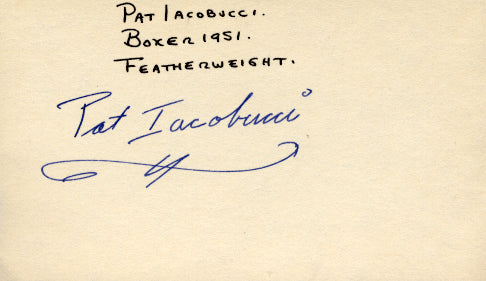 PAT IACOBUCCI.
BOXER 1951.
FEATHERWEIGHT.
Pat Iacobucci